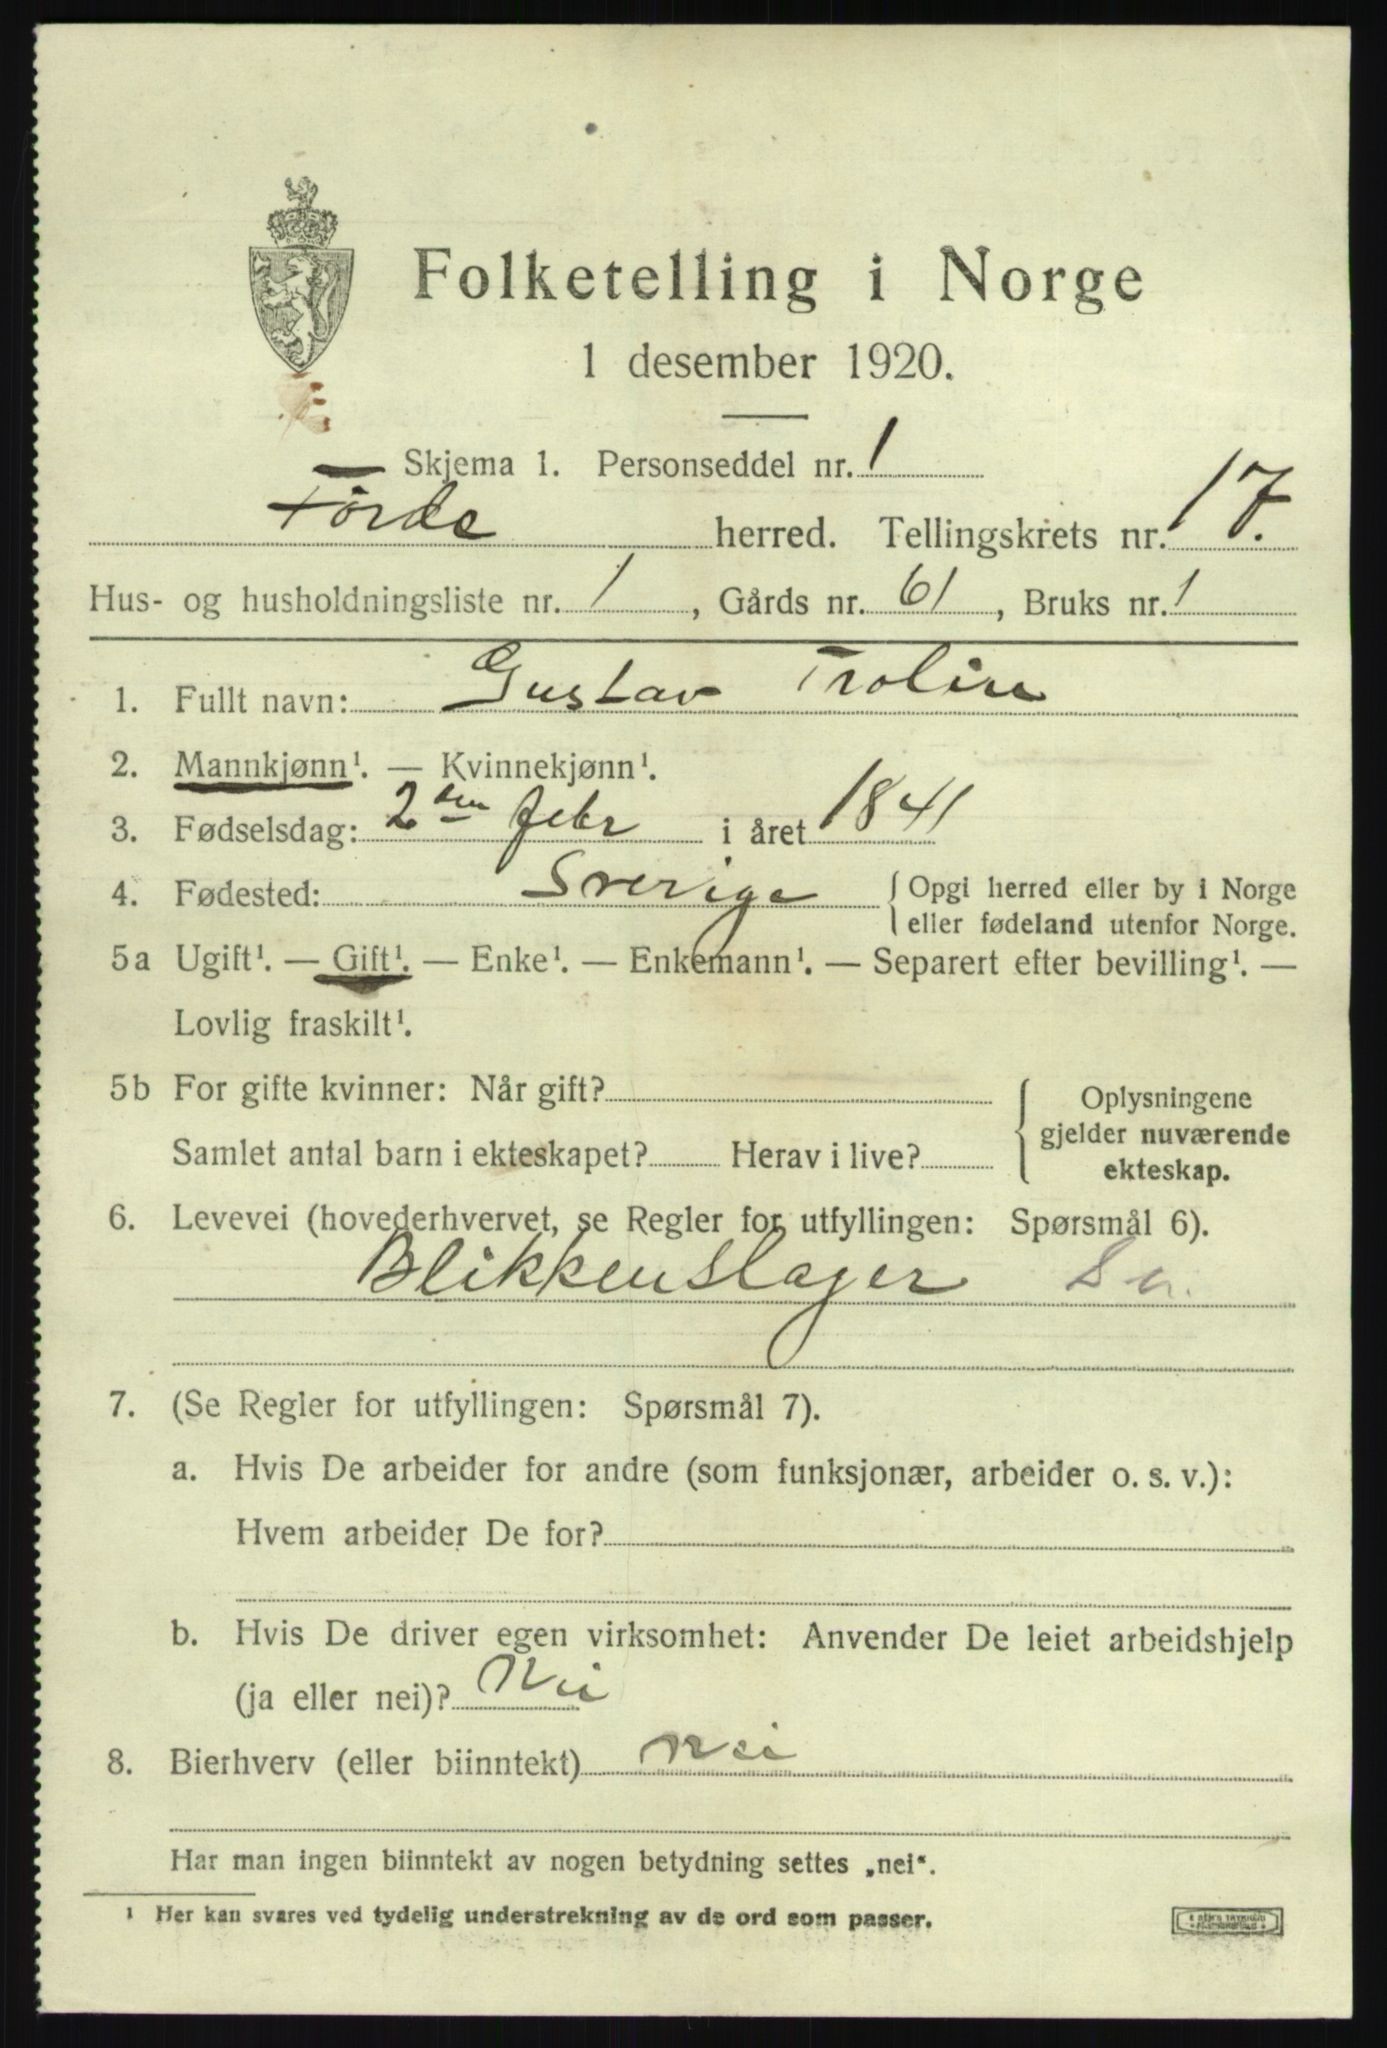 Folketelling i Norge
1 desember 1920.
Skjema 1. Personseddel nr. 1
Førde herred. Tellingskrets nr. 17.
Hus- og husholdningsliste nr. 1, Gårds nr. 61, Bruks nr. 1
1. Fullt navn: Gustav
2. Mannkjønn¹. — Kvinnekjønn¹.
3. Fødselsdag: 2den febr i året 1841
4. Fødested: Sverige { Opgi herred eller by i Norge
eller fødeland utenfor Norge.
5a Ugift¹. — Gift¹. — Enke¹. — Enkemann¹. — Separert efter bevilling¹. —
Lovlig fraskilt¹.
5b For gifte kvinner: Når gift?
Samlet antal barn i ekteskapet? Herav i live?
{ Oplysningene
gjelder nuværende
ekteskap.
6. Levevei (hovederhvervet, se Regler for utfyllingen: Spørsmål 6).
Blikkenslager
7. (Se Regler for utfyllingen: Spørsmål 7).
a. Hvis De arbeider for andre (som funksjonær, arbeider o. s. v.):
Hvem arbeider De for?
b. Hvis De driver egen virksomhet: Anvender De leiet arbeidshjelp
(ja eller nei)? Nei
8. Bierhverv (eller biinntekt) Nei
Har man ingen biinntekt av nogen betydning settes „nei“.
¹ Her kan svares ved tydelig understrekning av de ord som passer.